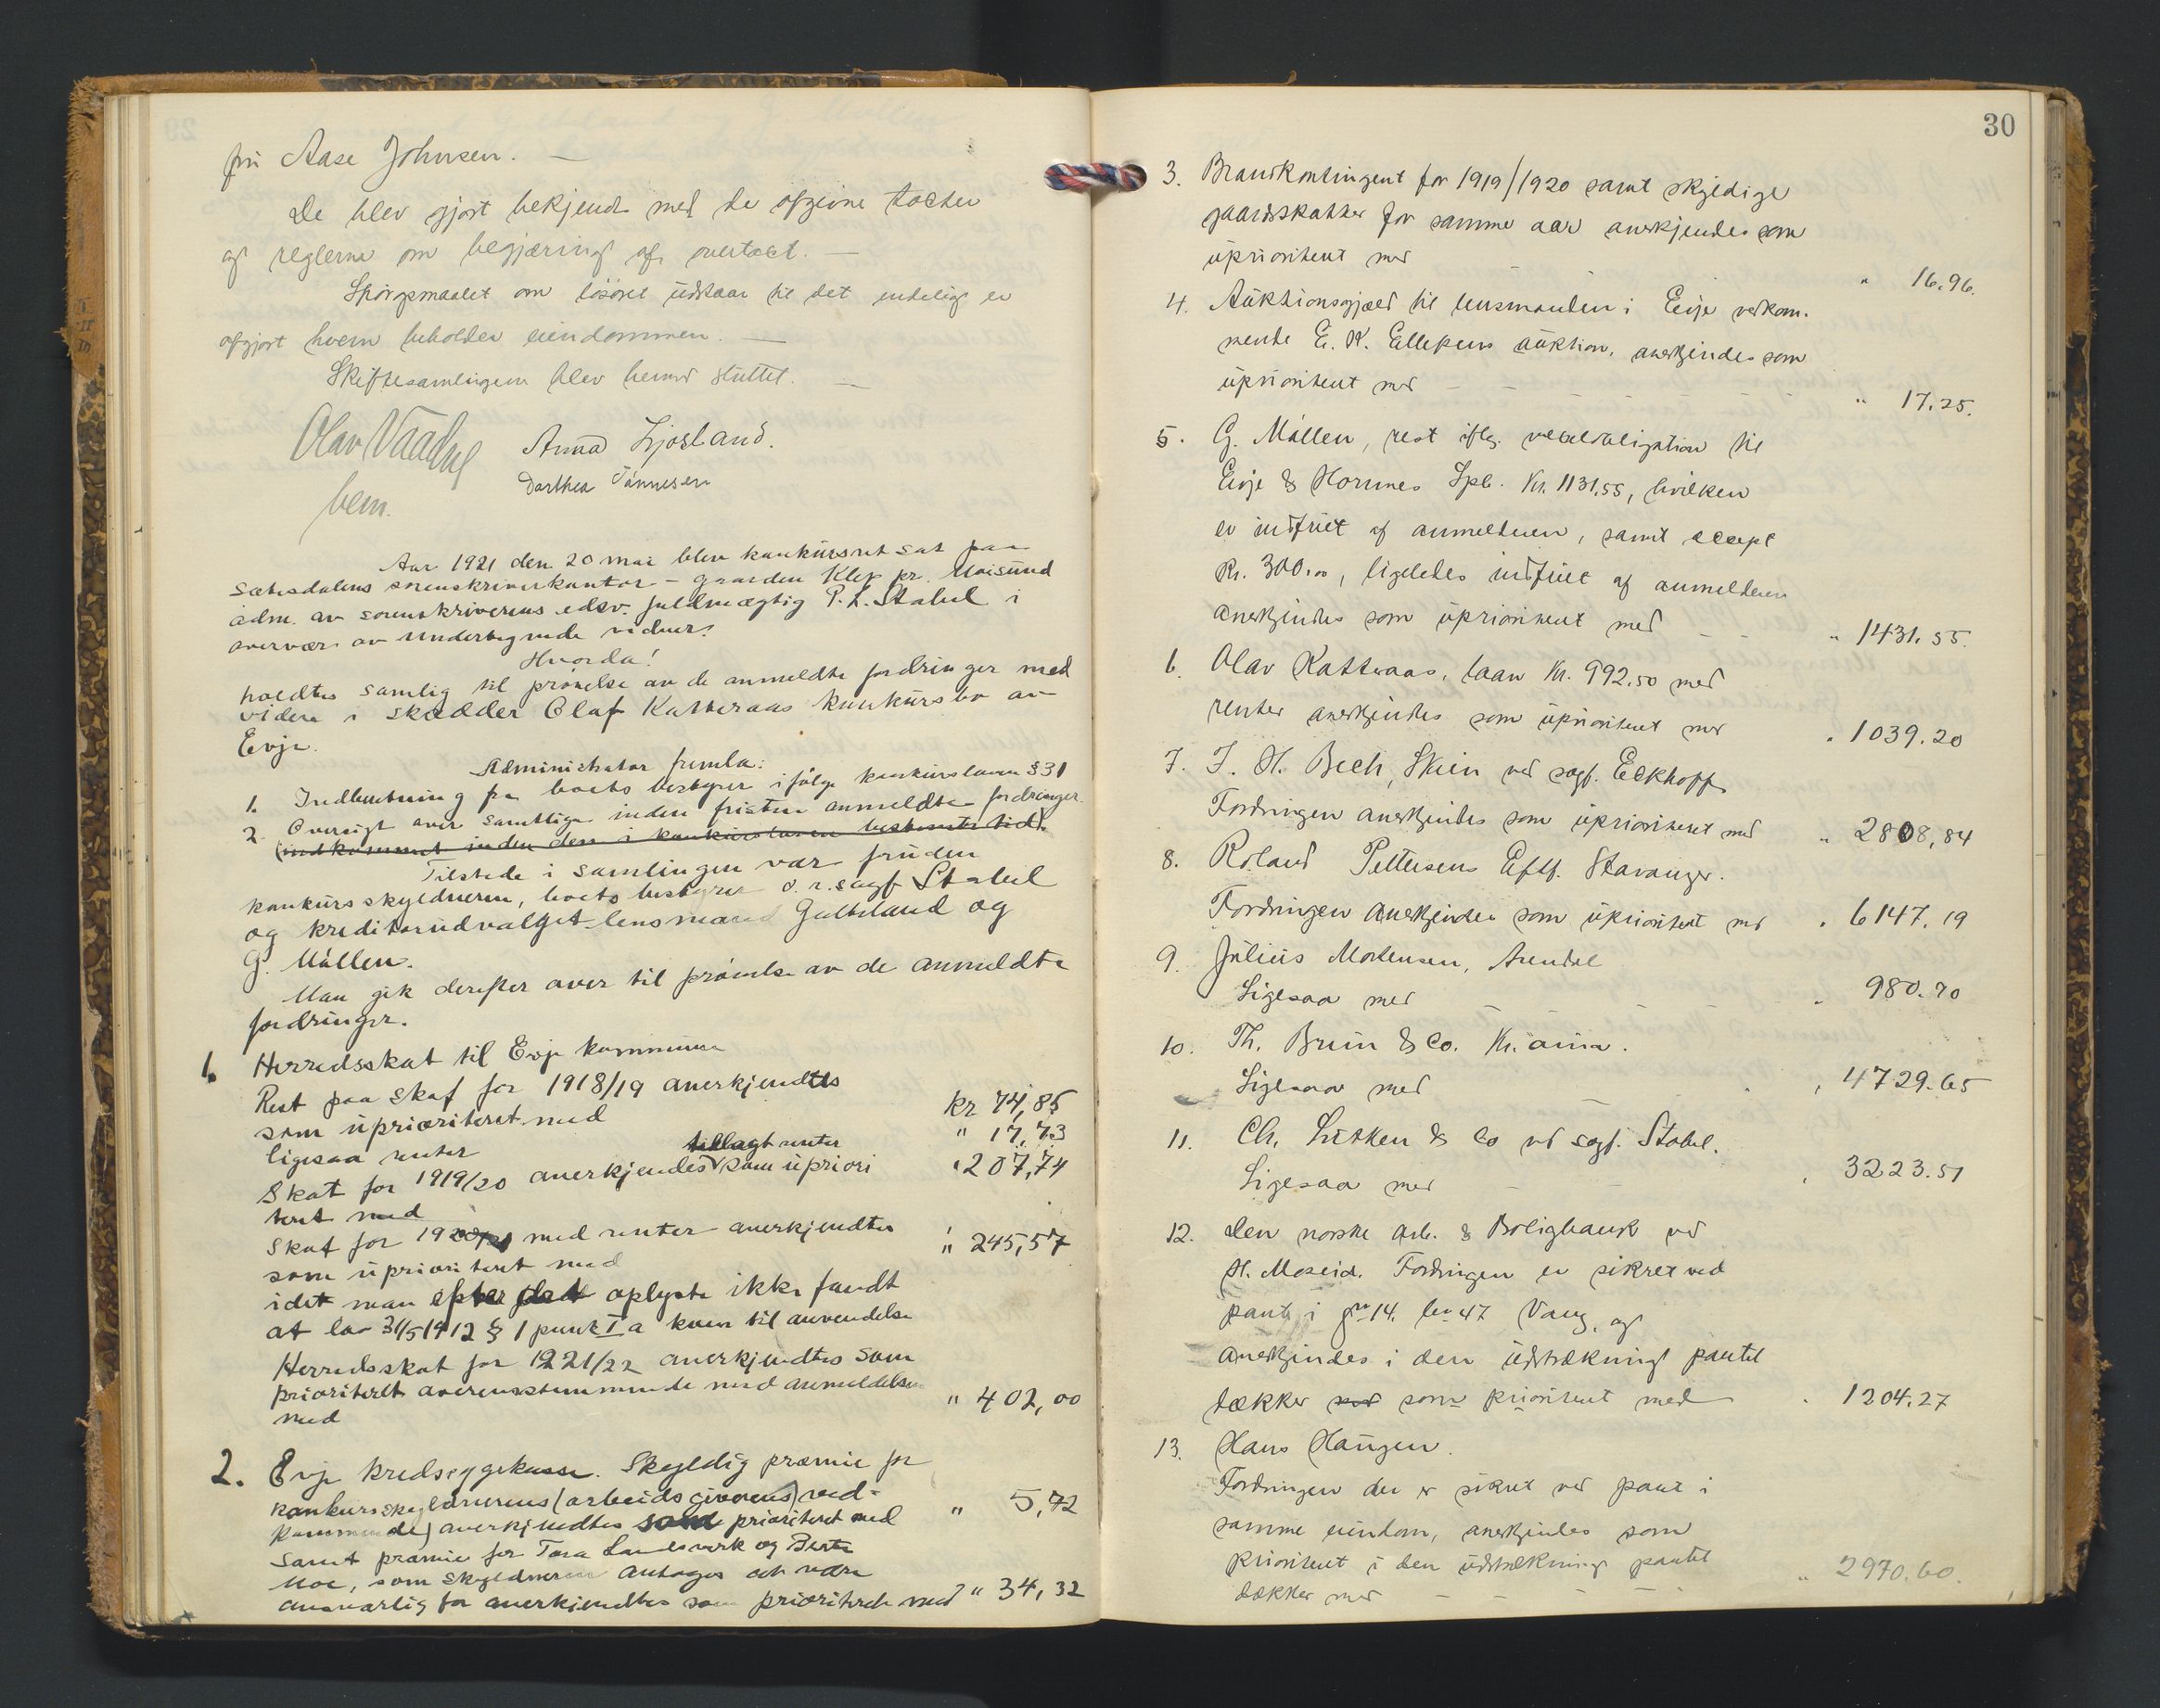 fru Aase Johnsen. —
De blev gjort bekjendt med de afgivne taxter
og reglerne om begjæring af overtaxt. —
Spörgsmaalet om lösöret udstaar til det endelig er
afgjort hvem beholder eiendommen. —
Skiftesamlingen blev hermed sluttet. —
Olav Vaadne Anna Ljosland.
Dorthea Tönnesen
bem.
Aar 1921 den 20 mai blev konkursret sat paa
Sætesdalens sorenskriverkontor – gaarden Klep pr. Moisund
adm. av sorenskriverens edsv. fuldmægtig P. L. Stabel i
overvær av undertegnede vidner.
Hvorda!
holdtes samlig til prövelse av de anmeldte fordringer med
videre i skrædder Olaf Katteraas konkursbo av
Evje.
Administrator fremla:
1. Indberetning fra boets bestyrer ifölge konkursloven § 31
2. Oversigt over samtlige inden fristen anmeldte fordringer.
(indkommet inden den i konkursloven bestemte tid).
Tilstede i samlingen var foruden
konkursskyldneren, boets bestyrer o.r.sagf Stabel
og kreditorudvalget – lensmand Galteland og
G. Möllen.
Man gik derefter over til prövelse av de anmeldte
fordringer.
1. Herredsskat til Evje kommune
Rest paa skat for 1918/19 anerkjendtes
som uprioriteret med kr 74,85
ligesaa renter " 17,73
tillagt renter
Skat for 1919/20 anerkjendes som upriori " 207,74
teret med
Skat for 1920/21 med renter anerkjendtes
som uprioriteret med " 245,57
idet man efter det oplyste ikke fandt
at lov 31/5 1912 § 1 punkt I a kom til anvendelse
Herredsskat for 1921/22 anerkjendtes som
prioriteret overensstemmende med anmeldelsen
med " 402,00
2. Evje kredssygekasse. Skyldig præmie for
konkursskyldnerens (arbeidsgiverens) ved-
kommende) anerkjendtes som prioriteret med " 5,72
samt præmie for Tora Landsverk og Berte
Moe, som skyldneren antages at være
ansvarlig for anerkjendtes som prioriterte med " 34,32
30
3. Brandkontingent for 1919/1920 samt skyldige
gaardsskatter for samme aar anerkjendes som
uprioritert med " 16.96.
4. Auktionsgjæld til lensmanden i Evje vedkom-
mende E. K. Ellefsens auktion, anerkjendes som
uprioritert med " 17.25.
5. G. Möllen, rest iflg. vexelobligation til
Evje & Hornnes Spb. Kr. 1131.55, hvilken
er indfriet af anmelderen, samt accept
Kr. 300.00, ligeledes indfriet af anmelderen
anerkjendes som uprioritert med " 1431.55.
6. Olav Katteraas, laan Kr. 992.50 med
renter anerkjendes som uprioritert med " 1039.20
7. J. H. Bech, Skien ved sagf. Eckhoff
Fordringen anerkjendes som uprioriteret med " 2808,84
8. Roland Pettersens Eftf. Stavanger.
Fordringen anerkjendes som uprioritert med " 6147.19
9. Julius Mortensen, Arendal
Ligesaa med " 980.70
10. Th. Bruun & Co. Kr.ania.
Ligesaa med " 4729.65
11. Ch. Lütken & Co ved sagf. Stabel.
Ligesaa med " 3223.51
12. Den norske Arb. & Boligbank ved
H. Moseid. Fordringen er sikret ved
pant i gno 14. bno 47 Vang, og
anerkjendes i den udstrækning pantet
dækker med som prioritert med " 1204.27
13. Hans Haugen.
Fordringen der er sikret ved pant i
samme eiendom, anerkjendes som
prioritert i den udstrækning pantet
dækker med " 2970.60.